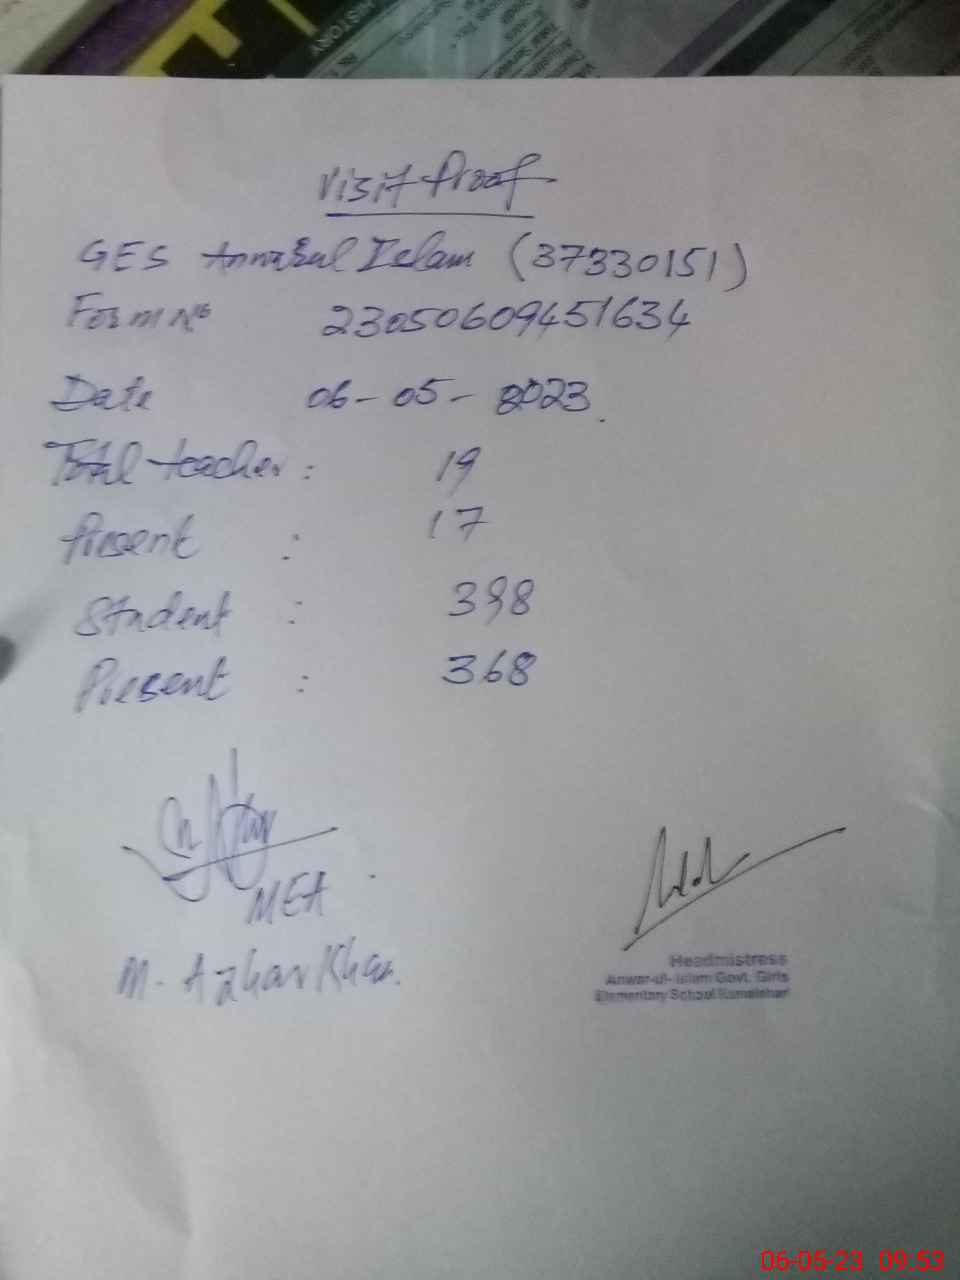 HISTORY
Visit Proof
GES Annarul Islam (37330151)
Form No 23050609451634
Date 06-05-2023.
Total teacher: 19
Present : 17
Student : 398
Present : 368
MEA
M. Azhar Khan.
Headmistress
Anwar-ul-Islam Govt. Girls
Elementary School Kamalshar
06-05-23 09.53